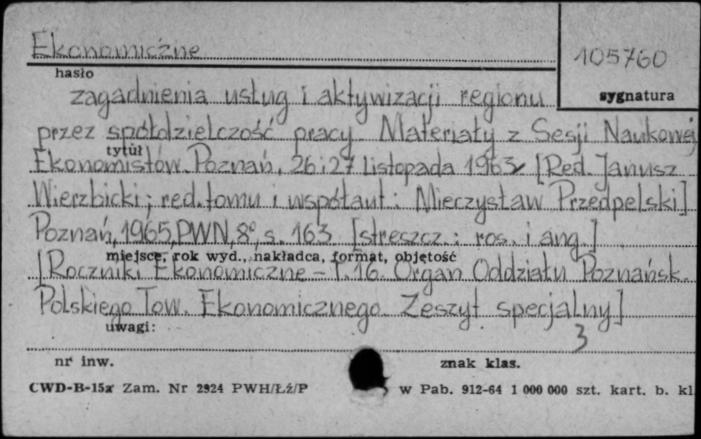 Ekonomiczne
105760
hasło
sygnatura
zagadnienia usług i aktywizacji regionu
przez spółdzielczość pracy. Materiały z Sesji Naukowej
tytuł
Ekonomistów. Poznań, 26 i 27 listopada 1963r [Red. Janusz
Wierzbicki; red. tomu i współaut.: Mieczysław Przedpelski]
Poznań, 1965, PWN, 8°, s. 163. [streszcz.: ros. i ang.]
miejsce, rok wyd., nakładca, format, objętość
[Roczniki Ekonomiczne – T. 16. Organ Oddziału Poznańsk.
Polskiego Tow. Ekonomicznego. Zeszyt specjalny]
uwagi:
3
nr inw.
znak klas.
CWD-B-15a Zam. Nr 2924 PWH/Łź/P
w Pab. 912-64 1 000 000 szt. kart. b. kl